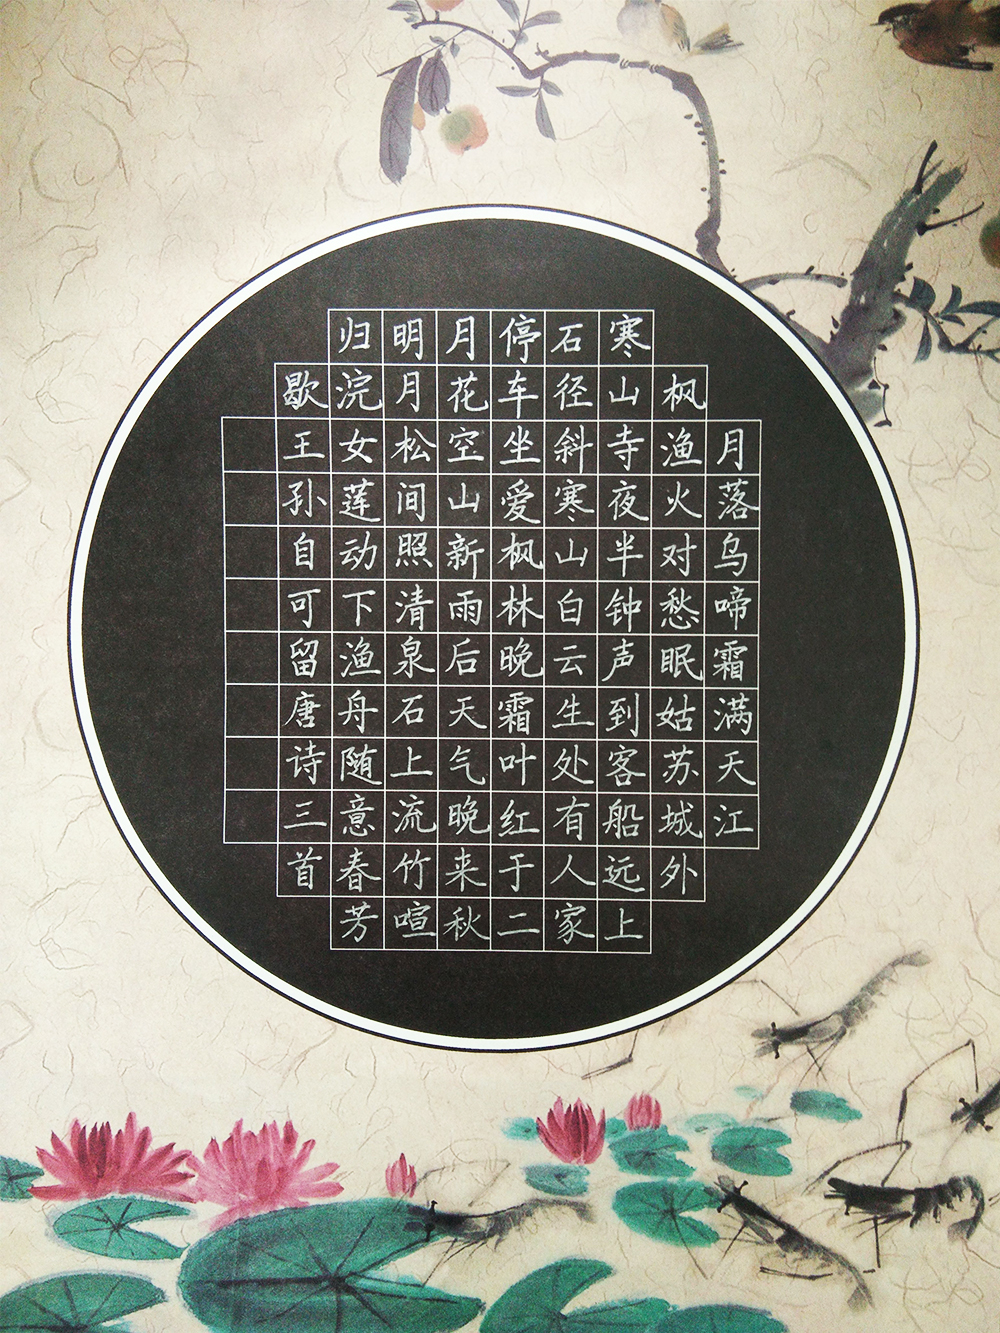 月落乌啼霜满天江
枫渔火对愁眠姑苏城外
寒山寺夜半钟声到客船远上
石径斜寒山白云生处有人家
停车坐爱枫林晚霜叶红于二
月花空山新雨后天气晚来秋
明月松间照清泉石上流竹喧
归浣女莲动下渔舟随意春芳
歇王孙自可留唐诗三首